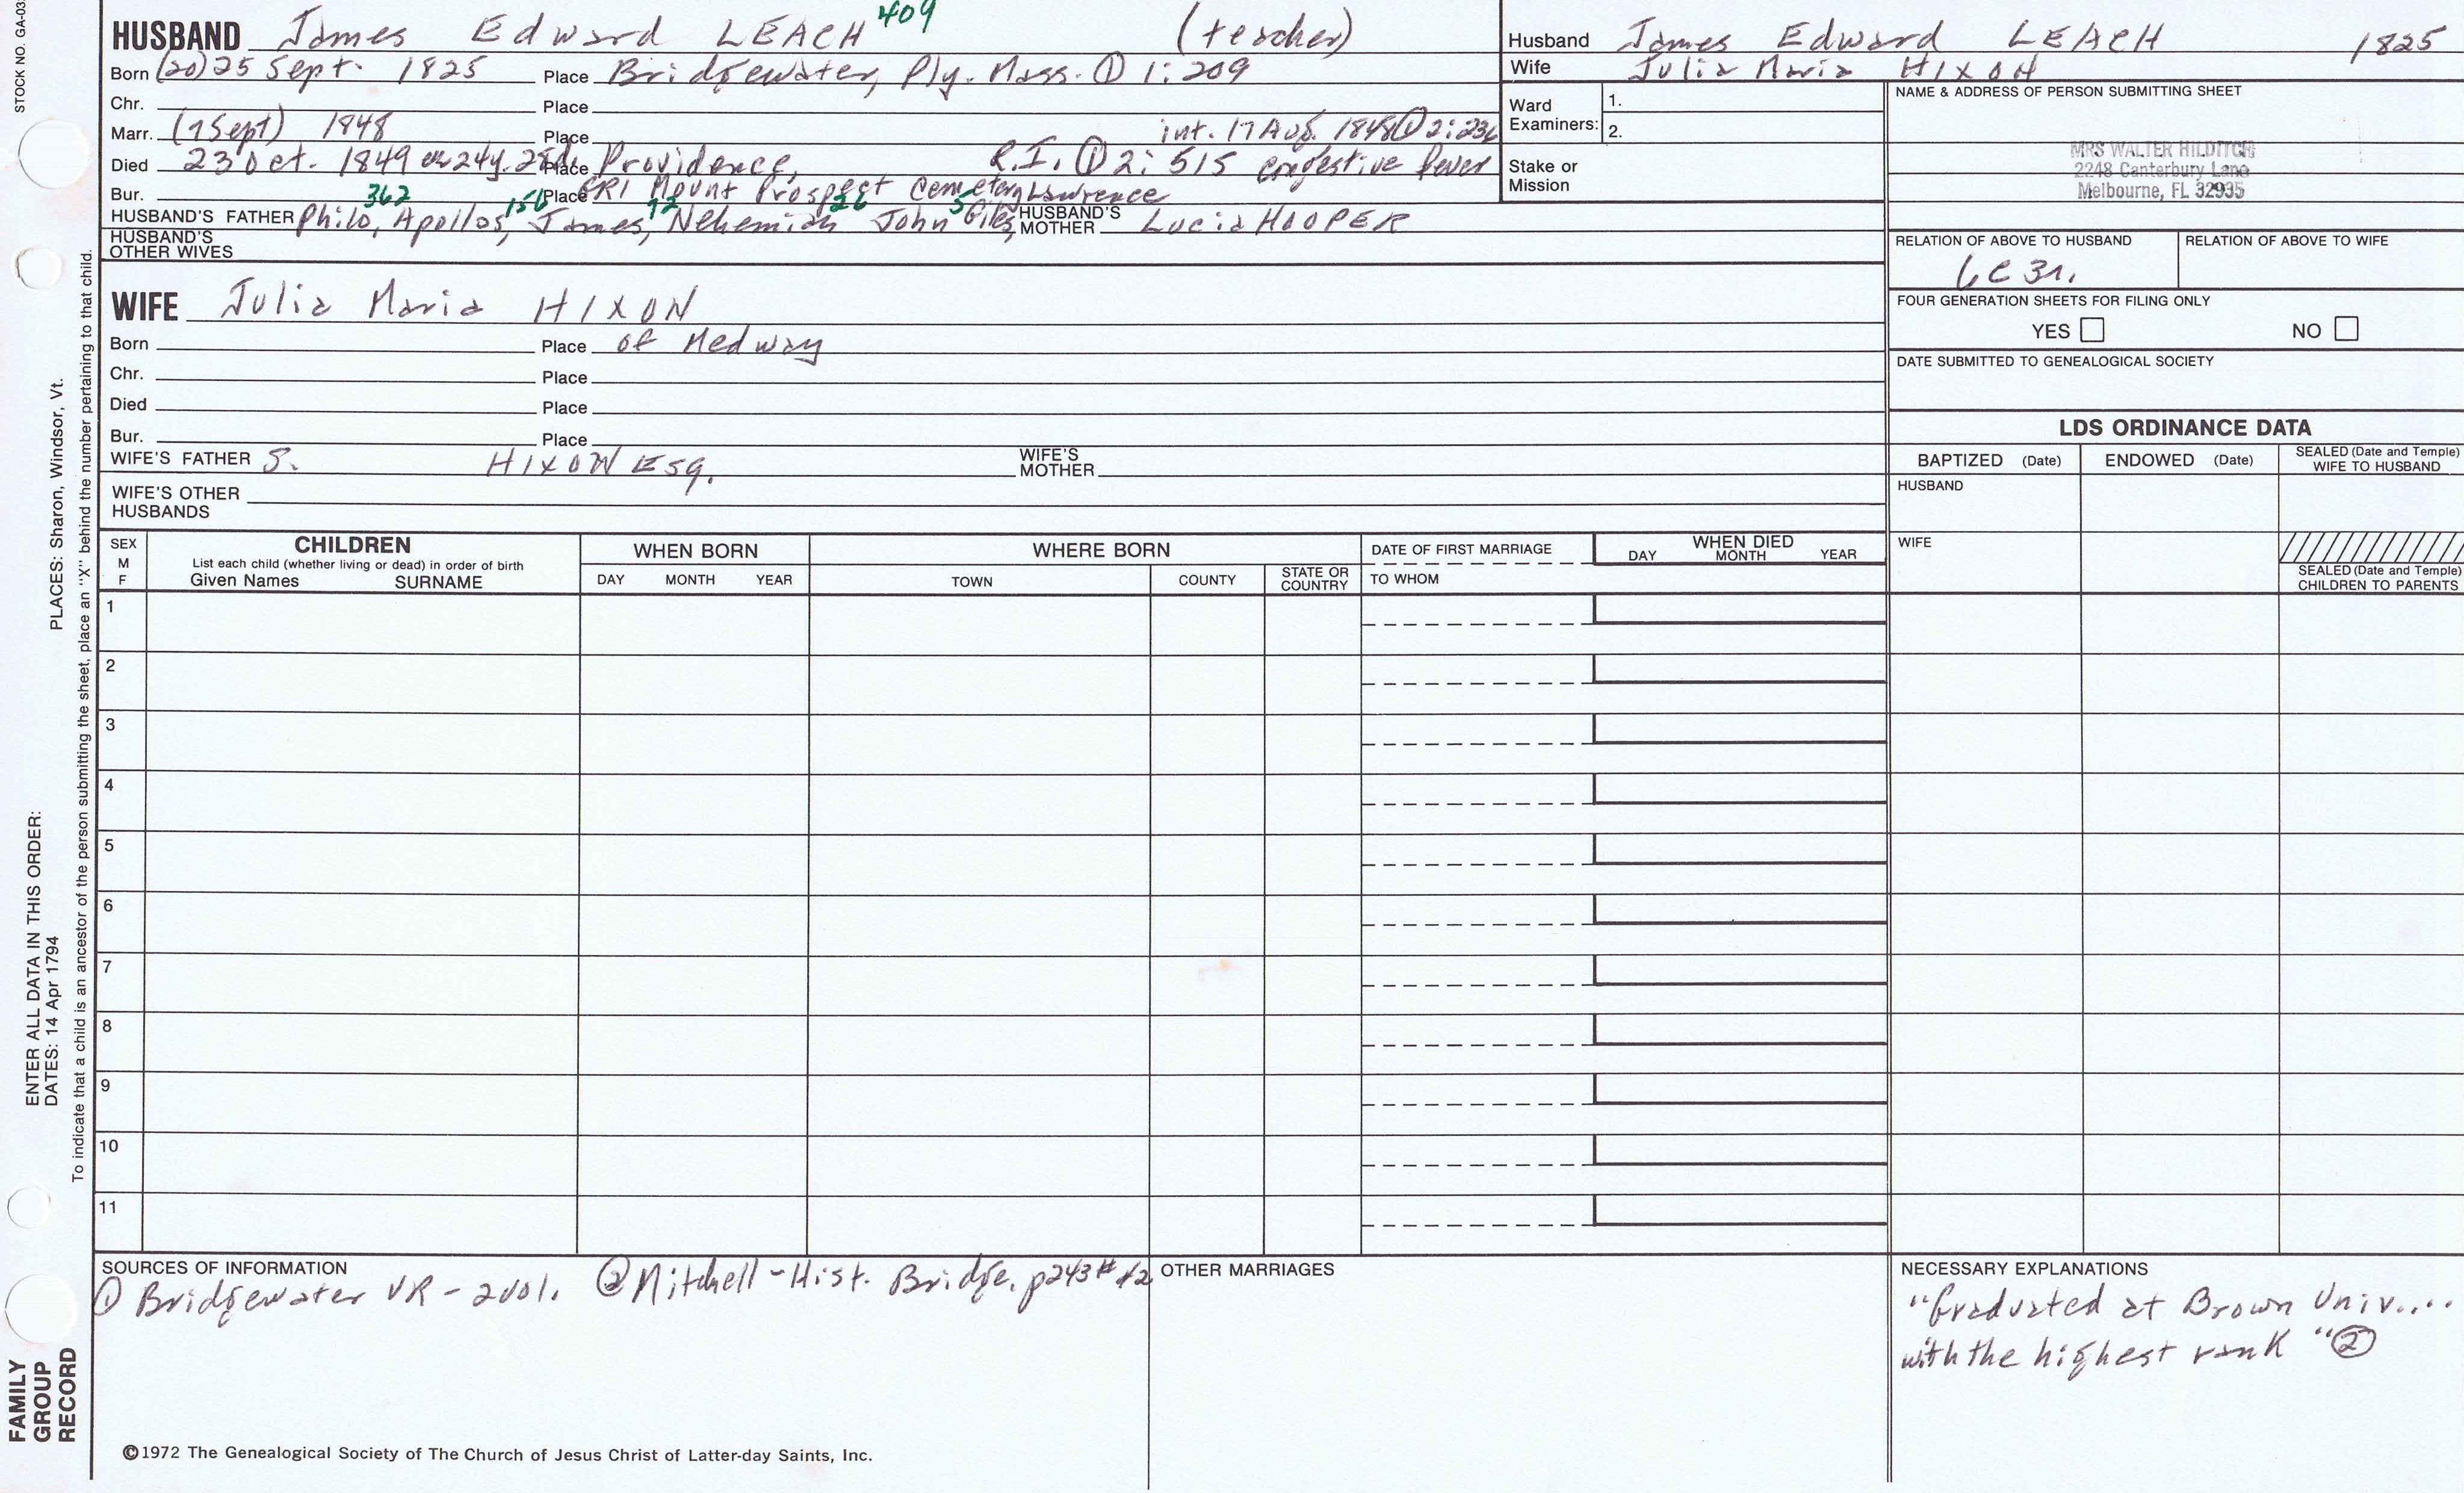 STOCK NO. GA-03
HUSBAND James Edward LEACH 409 (teacher)
Born (20) 25 Sept. 1825 Place Bridgewater, Ply. Mass. ① 1:209
Chr. Place
Marr. (7 Sept) 1848 Place int. 17 Aug. 1848 ① 2:236
Died 23 Oct. 1849 24y. 28d. Place Providence, R.I. ① 2:515 congestive fever
Bur. Place GR1 Mount Prospect Cemetery Lawrence
362 150 72 26 5
HUSBAND'S FATHER Philo, Apollos, James, Nehemiah John Giles, HUSBAND'S MOTHER Lucia HOOPER
HUSBAND'S OTHER WIVES
WIFE Julia Maria HIXON
Born Place of Medway
Chr. Place
Died Place
Bur. Place
WIFE'S FATHER S. HIXON Esq. WIFE'S MOTHER
WIFE'S OTHER HUSBANDS
Husband James Edward LEACH 1825
Wife Julia Maria HIXON
Ward Examiners: 1.
2.
Stake or Mission
NAME & ADDRESS OF PERSON SUBMITTING SHEET
MRS WALTER HILDITCH
2248 Canterbury Lane
Melbourne, FL 32935
RELATION OF ABOVE TO HUSBAND RELATION OF ABOVE TO WIFE
FOUR GENERATION SHEETS FOR FILING ONLY
YES NO
DATE SUBMITTED TO GENEALOGICAL SOCIETY
LDS ORDINANCE DATA
BAPTIZED (Date) ENDOWED (Date) SEALED (Date and Temple) WIFE TO HUSBAND
HUSBAND
WIFE
SEALED (Date and Temple) CHILDREN TO PARENTS
SEX M F
CHILDREN
List each child (whether living or dead) in order of birth
Given Names SURNAME
WHEN BORN
DAY MONTH YEAR
WHERE BORN
TOWN COUNTY STATE OR COUNTRY
DATE OF FIRST MARRIAGE
TO WHOM
WHEN DIED
DAY MONTH YEAR
1
2
3
4
5
6
7
8
9
10
11
SOURCES OF INFORMATION
① Bridgewater VR - 2 vol. ② Mitchell - Hist. Bridge. p243 #12
OTHER MARRIAGES
NECESSARY EXPLANATIONS
"Graduated at Brown Univ....
with the highest rank" ②
©1972 The Genealogical Society of The Church of Jesus Christ of Latter-day Saints, Inc.
FAMILY GROUP RECORD
ENTER ALL DATA IN THIS ORDER:
DATES: 14 Apr 1794
PLACES: Sharon, Windsor, Vt.
To indicate that a child is an ancestor of the person submitting the sheet, place an "X" behind the number pertaining to that child.